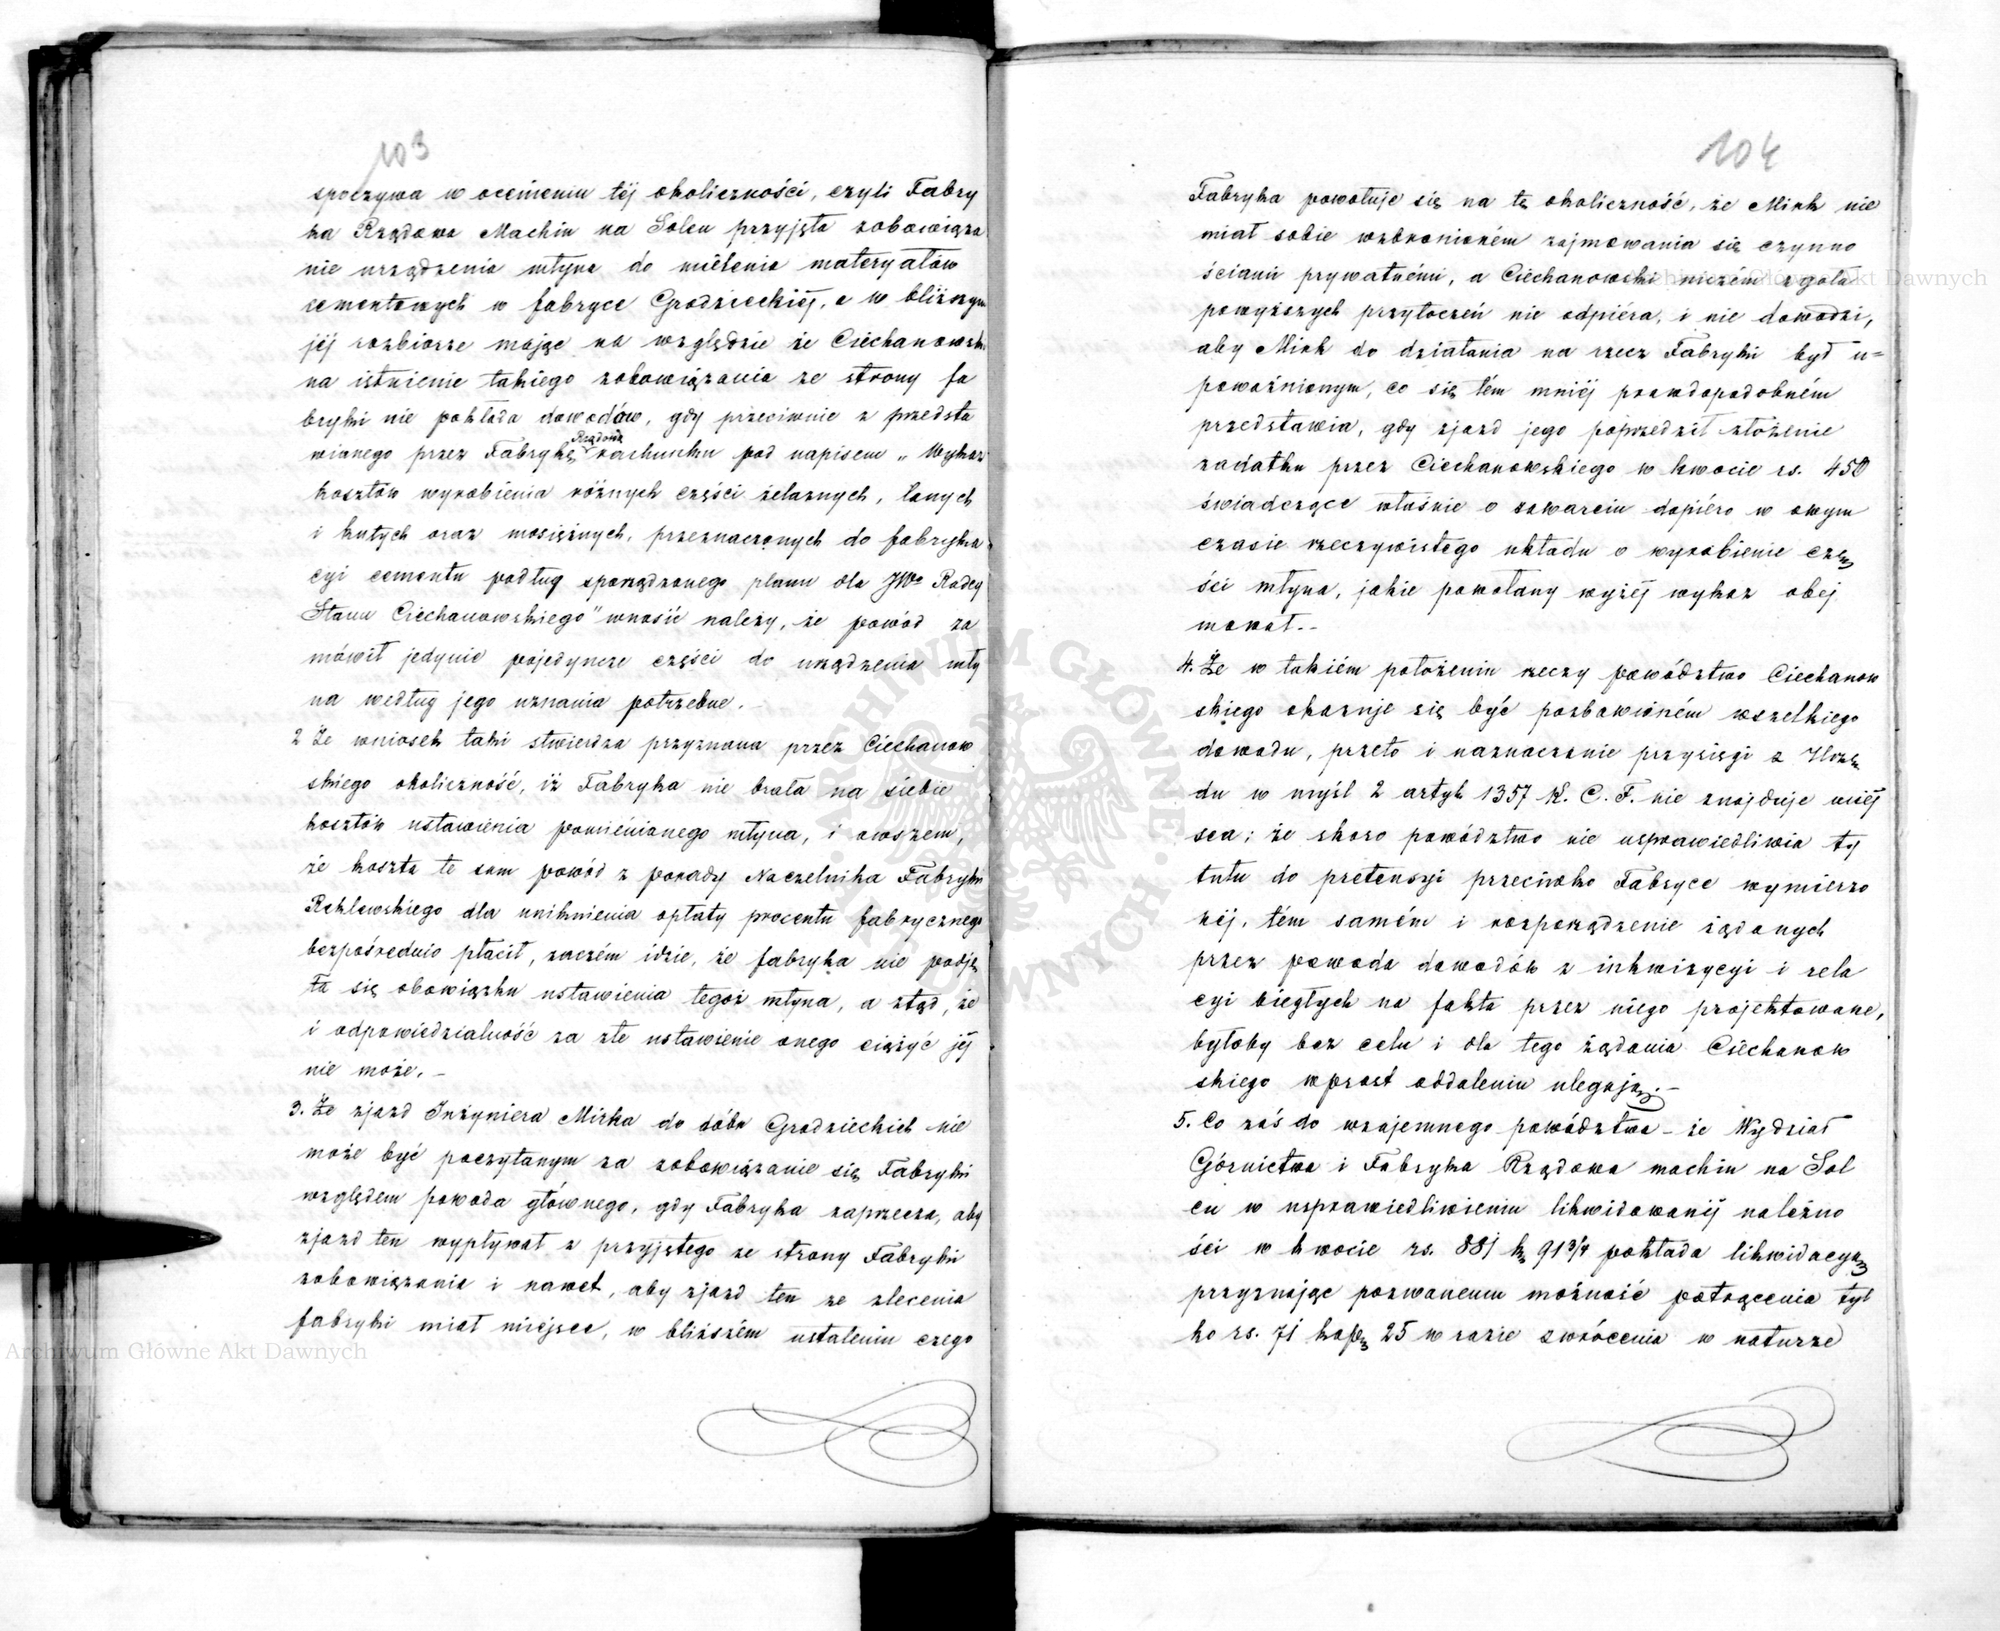 103
spoczywa w ocenieniu téj okoliczności, czyli Fabry
ka Rządowa Machin na Solcu przyjęła zobowiąza
nie urządzenia młyna do mielenia materyałów
cementowych w fabryce Grodzieckiéj, a w bliższym
jéj rozbiorze mając na względzie że Ciechanowski
na istnienie takiego zobowiązania ze strony fa
bryki nie pokłada dowodów, gdy przeciwnie z przedsta
wionego przez Fabrykę Rządową rachunku pod napisem „Wykaz
kosztów wyrobienia różnych części żelaznych, lanych
i kutych oraz mosiężnych, przeznaczonych do fabryka
cyi cementu podług sporządzonego planu dla JWo Radcy
Stanu Ciechanowskiego" wnosić należy, że powód za
mówił jedynie pojedyncze części do urządzenia mły
na według jego uznania potrzebne. –
2 Że wniosek taki stwierdza przyznana przez Ciechanow
skiego okoliczność, iż Fabryka nie brała na siebie
kosztów ustawienia pomienionego młyna, i owszem,
że koszta te sam powód z porady Naczelnika Fabryki
Rozlewskiego dla uniknienia opłaty procentu fabrycznego
bezpośrednio płacił, zaczém idzie, że fabryka nie podję
ła się obowiązku ustawienia tegoż młyna, a ztąd, że
i odpowiedzialność za złe ustawienie onego ciążyć jéj
nie może. –
3. Że zjazd Inżyniera Mirka do dóbr Grodzieckich nie
może być poczytanym za zobowiązanie się Fabryki
względem powoda głównego, gdy Fabryka zaprzecza, aby
zjazd ten wypływał z przyjętego ze strony Fabryki
zobowiązania i nawet, aby zjazd ten ze zlecenia
fabryki miał miejsce, w bliższém ustaleniu czego
104
Fabryka powołuje się na tę okoliczność, że Mirk nie
miał sobie wzbronioném zajmowania się czynno
ściami prywatnémi, a Ciechanowski niczém zgoła
powyższych przytoczeń nie odpiéra, i nie dowodzi,
aby Mirk do działania na rzecz Fabryki był u=
poważnionym, co się tém mniéj prawdopodobném
przedstawia, gdy zjazd jego poprzedził złożenie
zadatku przez Ciechanowskiego w kwocie rs. 450
świadczące właśnie o zawarciu dopiéro w owym
czasie rzeczywistego układu o wyrobienie czę
ści młyna, jakie powołany wyżéj wykaz obej
mował. –
4. Że w takiém położeniu rzeczy powództwo Ciechanow
skiego okazuje się być pozbawioném wszelkiego
dowodu, przeto i naznaczenie przysięgi z Urzę
du w myśl 2 artyk 1357 K. C. F. nie znajduje miéj
sca; że skoro powództwo nie usprawiedliwia ty
tułu do pretensyi przeciwko Fabryce wymierzo
néj, tém samém i rozporządzenie żądanych
przez powoda dowodów z inkwizycyi i rela
cyi biegłych na fakta przez niego projektowane,
byłoby bez celu i dla tego żądania Ciechanow
skiego wprost oddaleniu ulegają. –
5. Co zaś do wzajemnego powództwa – że Wydział
Górnictwa i Fabryka Rządowa machin na Sol
cu w usprawiedliwieniu likwidowanéj należno
ści w kwocie rs. 881 k 91 3/4 pokłada likwidacyą
przyznając pozwanemu możność potrącenia tyl
ko rs. 71 kop 25 w razie zwrócenia w naturze
ARCHIWUM GŁÓWNE AKT DAWNYCH
Archiwum Główne Akt Dawnych
Archiwum Główne Akt Dawnych